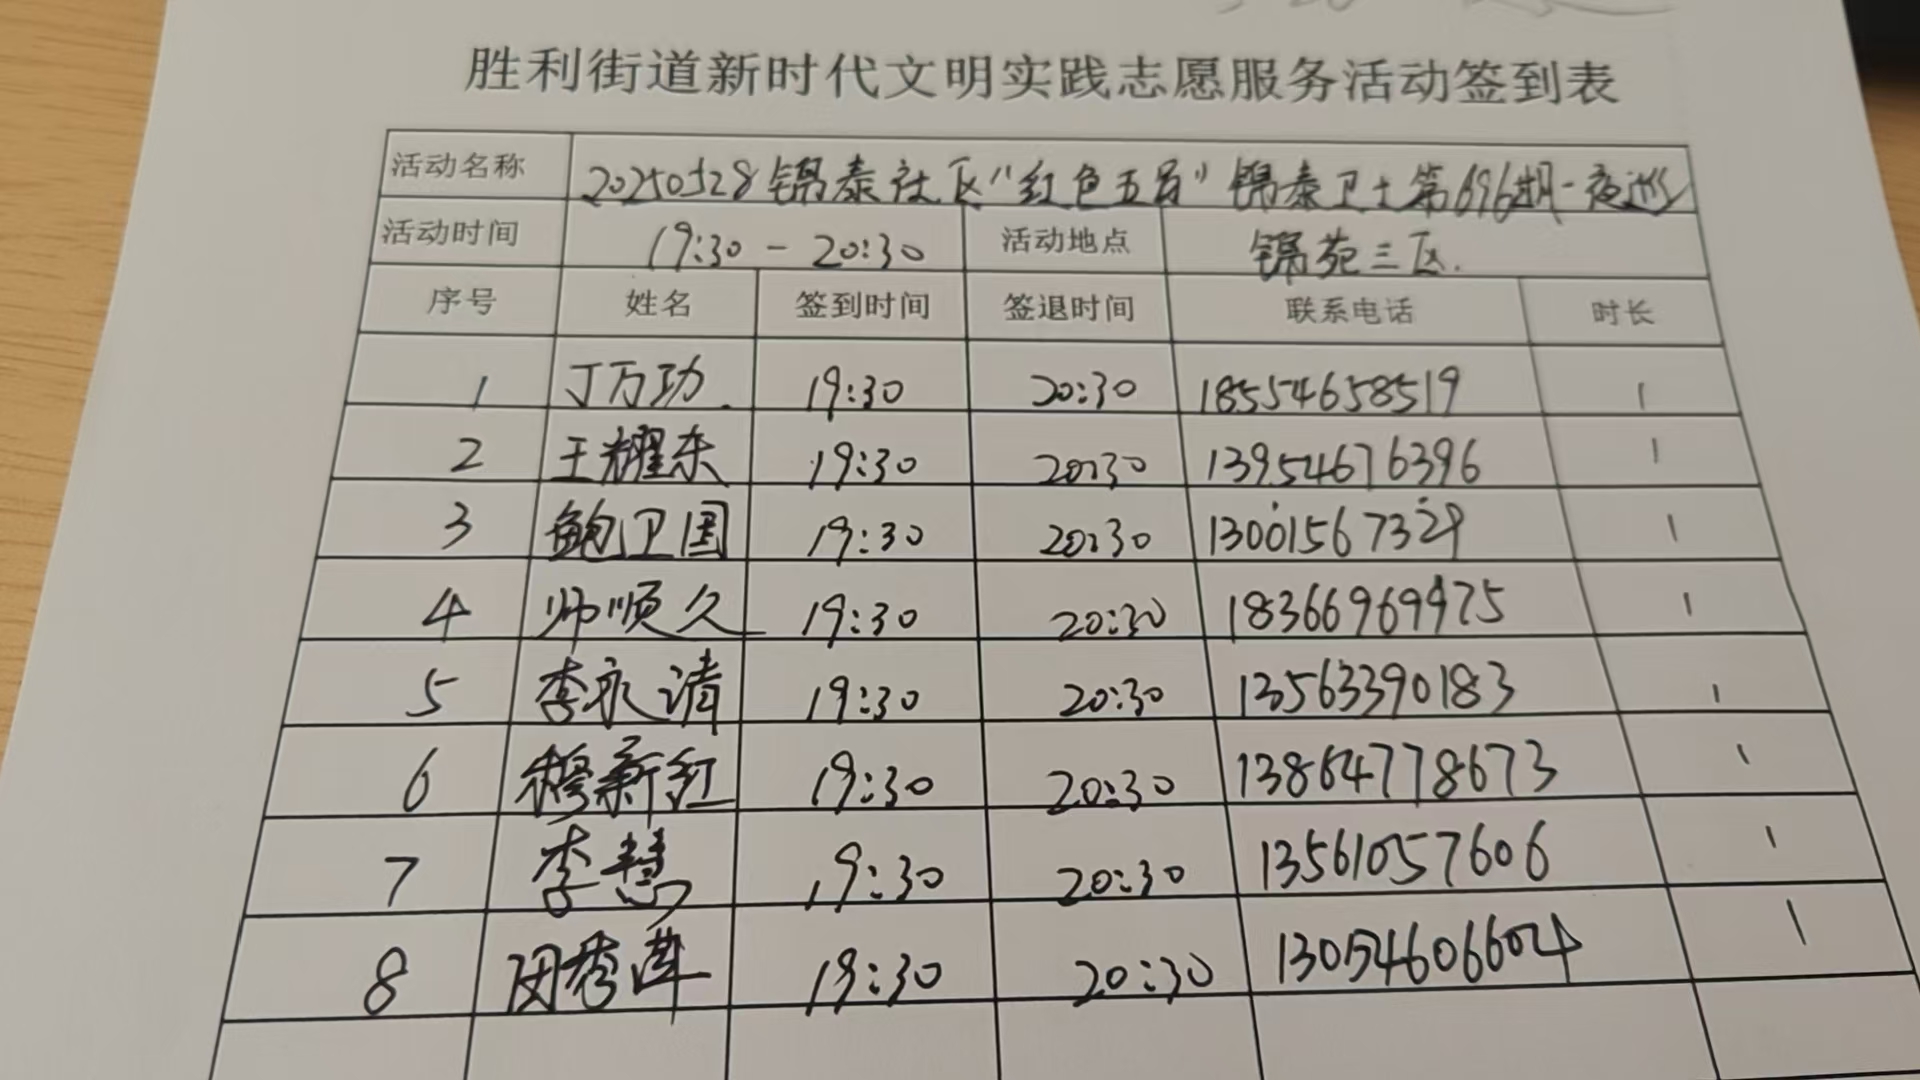 胜利街道新时代文明实践志愿服务活动签到表
活动名称 20250528锦泰社区“红色五员”锦泰卫士第696期-夜巡
活动时间 19:30-20:30 活动地点 锦苑三区.
序号 姓名 签到时间 签退时间 联系电话 时长
1 丁万功 19:30 20:30 18554658519 1
2 王耀东 19:30 20:30 13954676396 1
3 鲍卫国 19:30 20:30 13001567329 1
4 师顺久 19:30 20:30 18366969975 1
5 李永清 19:30 20:30 13563390183 1
6 穆新红 19:30 20:30 13864778673 1
7 李慧 19:30 20:30 13561057606 1
8 闵秀莲 19:30 20:30 13054606604 1